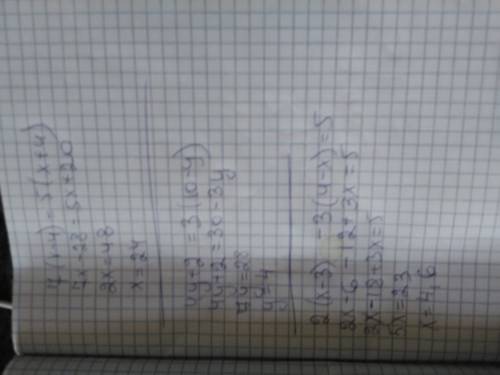 7(x-4) = 5(x+4)
7x-28 = 5x+20
2x=48
x=24
4y+2 = 3(10-y)
4y+2=30-3y
7y=28
y=4
2(x-3) -3(4-x)=5
2x-6-12+3x=5
2x-18+3x=5
5x=23
x=4,6